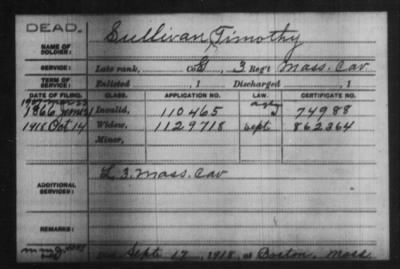 DEAD.
Sullivan, Timothy
NAME OF SOLDIER:
SERVICE: Late rank, Co. E, 3 Reg't Mass. Cav
TERM OF SERVICE: Enlisted , 1 Discharged , 1
DATE OF FILING. CLASS. APPLICATION NO. LAW. CERTIFICATE NO.
1866 Invalid, 110465 74988
1918 Oct 14 Widow, 1129718 Sept 862364
Minor,
ADDITIONAL SERVICES: L 3. Mass. Cav
REMARKS:
Died Sept 17, 1918, at Boston, Mass.